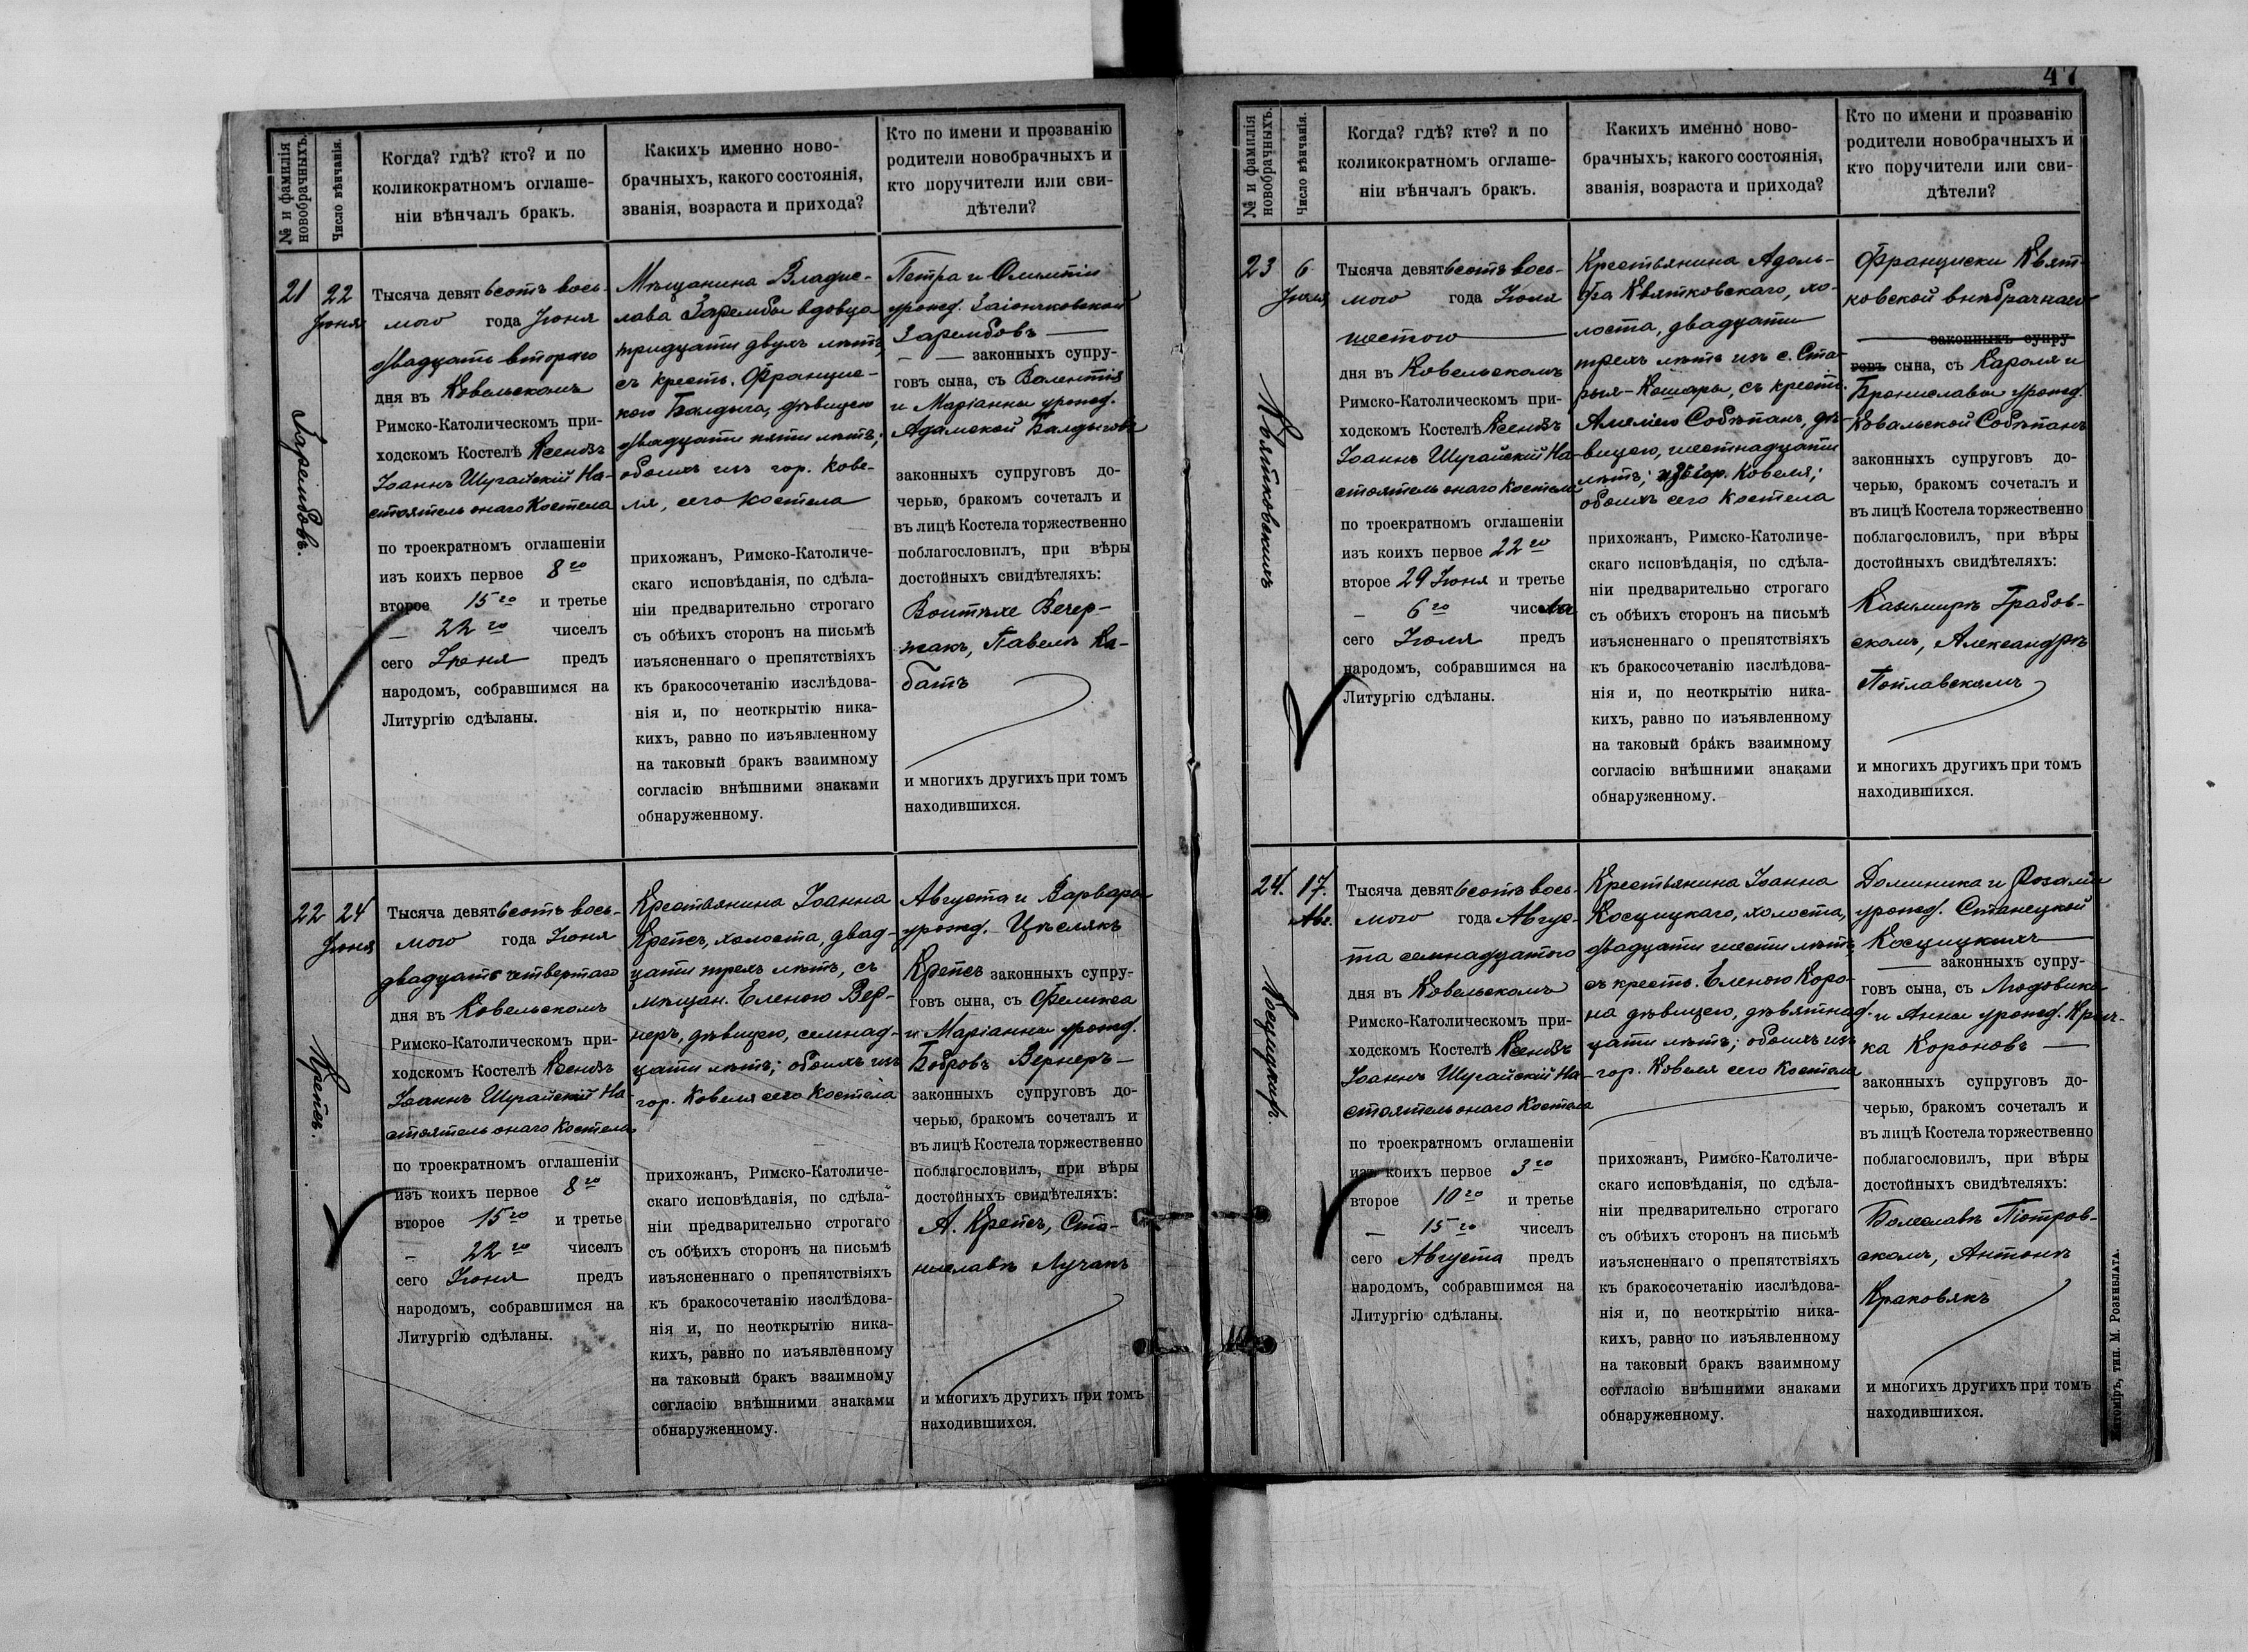 № и фамилія
новобрачныхъ.
Число вѣнчанія.
Когда? гдѣ? кто? и по
коликократномъ оглаше-
ніи вѣнчалъ бракъ.
Какихъ именно ново-
брачныхъ, какого состоянія,
званія, возраста и прихода?
Кто по имени и прозванію
родители новобрачныхъ и
кто поручители или сви-
дѣтели?
21
Зарембовъ.
22
Іюня
Тысяча девятьсотъ вось-
мого года Іюня
двадцать второго
дня въ Ковельскомъ
Римско-Католическомъ при-
ходскомъ Костелѣ Ксендзъ
Іоаннъ Шугайскій На-
стоятель онаго Костела
по троекратномъ оглашеніи
изъ коихъ первое 8го
второе 15го и третье
— 22го чиселъ
сего Іюня предъ
народомъ, собравшимся на
Литургію сдѣланы.
Мѣщанина Владис-
лава Зарембы вдовца
тридцати двухъ лѣтъ,
съ крест. Францис-
кою Балдыга, дѣвицею
двадцати пяти лѣтъ;
обоихъ изъ гор. Кове-
ля, сего Костела
прихожанъ, Римско-Католиче-
скаго исповѣданія, по сдѣла-
ніи предварительно строгаго
съ обѣихъ сторонъ на письмѣ
изъясненнаго о препятствіяхъ
къ бракосочетанію изслѣдова-
нія и, по неоткрытію ника-
кихъ, равно по изъявленному
на таковый бракъ взаимному
согласію внѣшними знаками
обнаруженному.
Петра и Олимпіи
урожд. Заіончковской
Зарембовъ —
— — законныхъ супру-
говъ сына, съ Валентія
и Маріанны урожд.
Адамской Балдыговъ
законныхъ супруговъ до-
черью, бракомъ сочеталъ и
въ лицѣ Костела торжественно
поблагословилъ, при вѣры
достойныхъ свидѣтеляхъ:
Войтѣхе Вечер-
жакъ, Павелъ Ка-
батъ
и многихъ другихъ при томъ
находившихся.
22
Крепсъ.
24
Іюня
Тысяча девятьсотъ вось-
мого года Іюня
двадцать четвертаго
дня въ Ковельскомъ
Римско-Католическомъ при-
ходскомъ Костелѣ Ксендзъ
Іоаннъ Шугайскій На-
стоятель онаго Костела
по троекратномъ оглашеніи
изъ коихъ первое 8го
второе 15го и третье
— 22го чиселъ
сего Іюня предъ
народомъ, собравшимся на
Литургію сдѣланы.
Крестьянина Іоанна
Крепсъ, холоста, двад-
цати трехъ лѣтъ, съ
мѣщан. Еленою Вер-
неръ, дѣвицею, семнад-
цати лѣтъ; обоихъ изъ
гор. Ковеля сего Костела
прихожанъ, Римско-Католиче-
скаго исповѣданія, по сдѣла-
ніи предварительно строгаго
съ обѣихъ сторонъ на письмѣ
изъясненнаго о препятствіяхъ
къ бракосочетанію изслѣдова-
нія и, по неоткрытію ника-
кихъ, равно по изъявленному
на таковый бракъ взаимному
согласію внѣшними знаками
обнаруженному.
Августа и Варвары
урожд. Цѣслякъ
Крепсъ законныхъ супру-
говъ сына, съ Феликса
и Маріанны урожд.
Бобровъ Вернеръ —
законныхъ супруговъ до-
черью, бракомъ сочеталъ и
въ лицѣ Костела торжественно
поблагословилъ, при вѣры
достойныхъ свидѣтеляхъ:
А. Крепсъ, Ста-
ниславъ Лучакъ
и многихъ другихъ при томъ
находившихся.
47
№ и фамилія
новобрачныхъ.
Число вѣнчанія.
Когда? гдѣ? кто? и по
коликократномъ оглаше-
ніи вѣнчалъ бракъ.
Какихъ именно ново-
брачныхъ, какого состоянія,
званія, возраста и прихода?
Кто по имени и прозванію
родители новобрачныхъ и
кто поручители или сви-
дѣтели?
23
Квятковскихъ
6
Іюля
Тысяча девятьсотъ вось-
мого года Іюля
шестого —
дня въ Ковельскомъ
Римско-Католическомъ при-
ходскомъ Костелѣ Ксендзъ
Іоаннъ Шугайскій На-
стоятель онаго Костела
по троекратномъ оглашеніи
изъ коихъ первое 22го
второе 29 Іюня и третье
— 6го числа
сего Іюля предъ
народомъ, собравшимся на
Литургію сдѣланы.
Крестьянина Адоль-
фа Квятковскаго, хо-
лоста, двадцати
трехъ лѣтъ изъ с. Ста-
рыя-Кошары, съ крест.
Амеліею Собѣпанъ, дѣ-
вицею, шестнадцати
лѣтъ; изъ гор. Ковеля;
обоихъ сего Костела
прихожанъ, Римско-Католиче-
скаго исповѣданія, по сдѣла-
ніи предварительно строгаго
съ обѣихъ сторонъ на письмѣ
изъясненнаго о препятствіяхъ
къ бракосочетанію изслѣдова-
нія и, по неоткрытію ника-
кихъ, равно по изъявленному
на таковый бракъ взаимному
согласію внѣшними знаками
обнаруженному.
Франциски Квят-
ковской внѣбрачнаго
— законныхъ супру-
говъ сына, съ Кароля и
Брониславы урожд.
Ковальской Собѣпанъ
законныхъ супруговъ до-
черью, бракомъ сочеталъ и
въ лицѣ Костела торжественно
поблагословилъ, при вѣры
достойныхъ свидѣтеляхъ:
Казимиръ Грабов-
скомъ, Александръ
Поплавскомъ
и многихъ другихъ при томъ
находившихся.
24.
Косцицкихъ.
17.
Авг.
Тысяча девятьсотъ вось-
мого года Авгус-
та семнадцатого
дня въ Ковельскомъ
Римско-Католическомъ при-
ходскомъ Костелѣ Ксендзъ
Іоаннъ Шугайскій На-
стоятель онаго Костела
по троекратномъ оглашеніи
изъ коихъ первое 3го
второе 10го и третье
— 15го чиселъ
сего Августа предъ
народомъ, собравшимся на
Литургію сдѣланы.
Крестьянина Іоанна
Косцицкаго, холоста,
двадцати шести лѣтъ,
съ крест. Еленою Коро-
на дѣвицею, дѣвятнад-
цати лѣтъ; обоихъ изъ
гор. Ковеля сего Костела
прихожанъ, Римско-Католиче-
скаго исповѣданія, по сдѣла-
ніи предварительно строгаго
съ обѣихъ сторонъ на письмѣ
изъясненнаго о препятствіяхъ
къ бракосочетанію изслѣдова-
нія и, по неоткрытію ника-
кихъ, равно по изъявленному
на таковый бракъ взаимному
согласію внѣшними знаками
обнаруженному.
Доминика и Розаліи
урожд. Станецкой
Косцицкихъ —
— законныхъ супру-
говъ сына, съ Людовика
и Анны урожд.
ка Короновъ —
законныхъ супруговъ до-
черью, бракомъ сочеталъ и
въ лицѣ Костела торжественно
поблагословилъ, при вѣры
достойныхъ свидѣтеляхъ:
Болеславъ Піотров-
скомъ, Антонъ
Краковякъ
и многихъ другихъ при томъ
находившихся.
Житоміръ, тип. М. Розенблата.